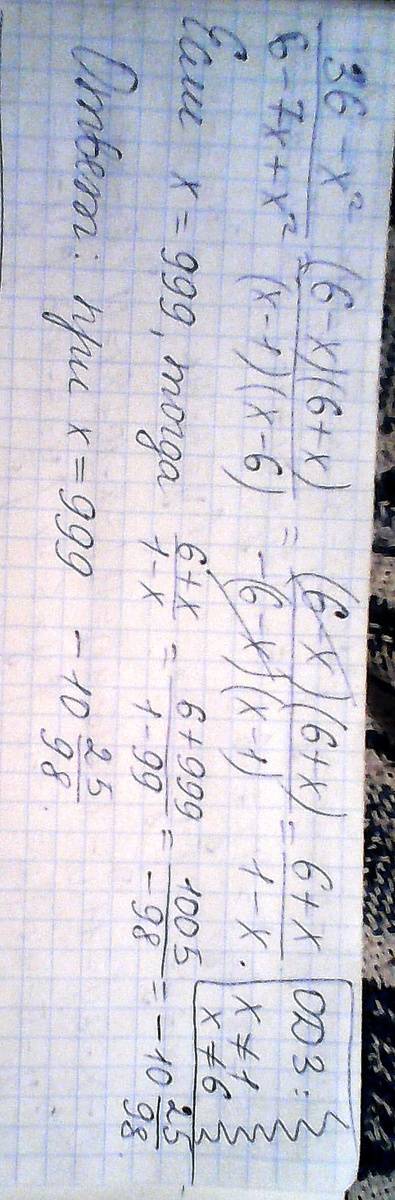 (36 - x²)/(6 - 7x + x²) = ((6 - x)(6 + x))/((x - 1)(x - 6)) = ((6 - x)(6 + x))/(-(6 - x)(x - 1)) = (6 + x)/(1 - x). ОДЗ: x ≠ 1 x ≠ 6
Если x = 999, тогда (6 + x)/(1 - x) = (6 + 999)/(1 - 99) = 1005/(-98) = -10 25/98
Ответ: при x = 999 -10 25/98.